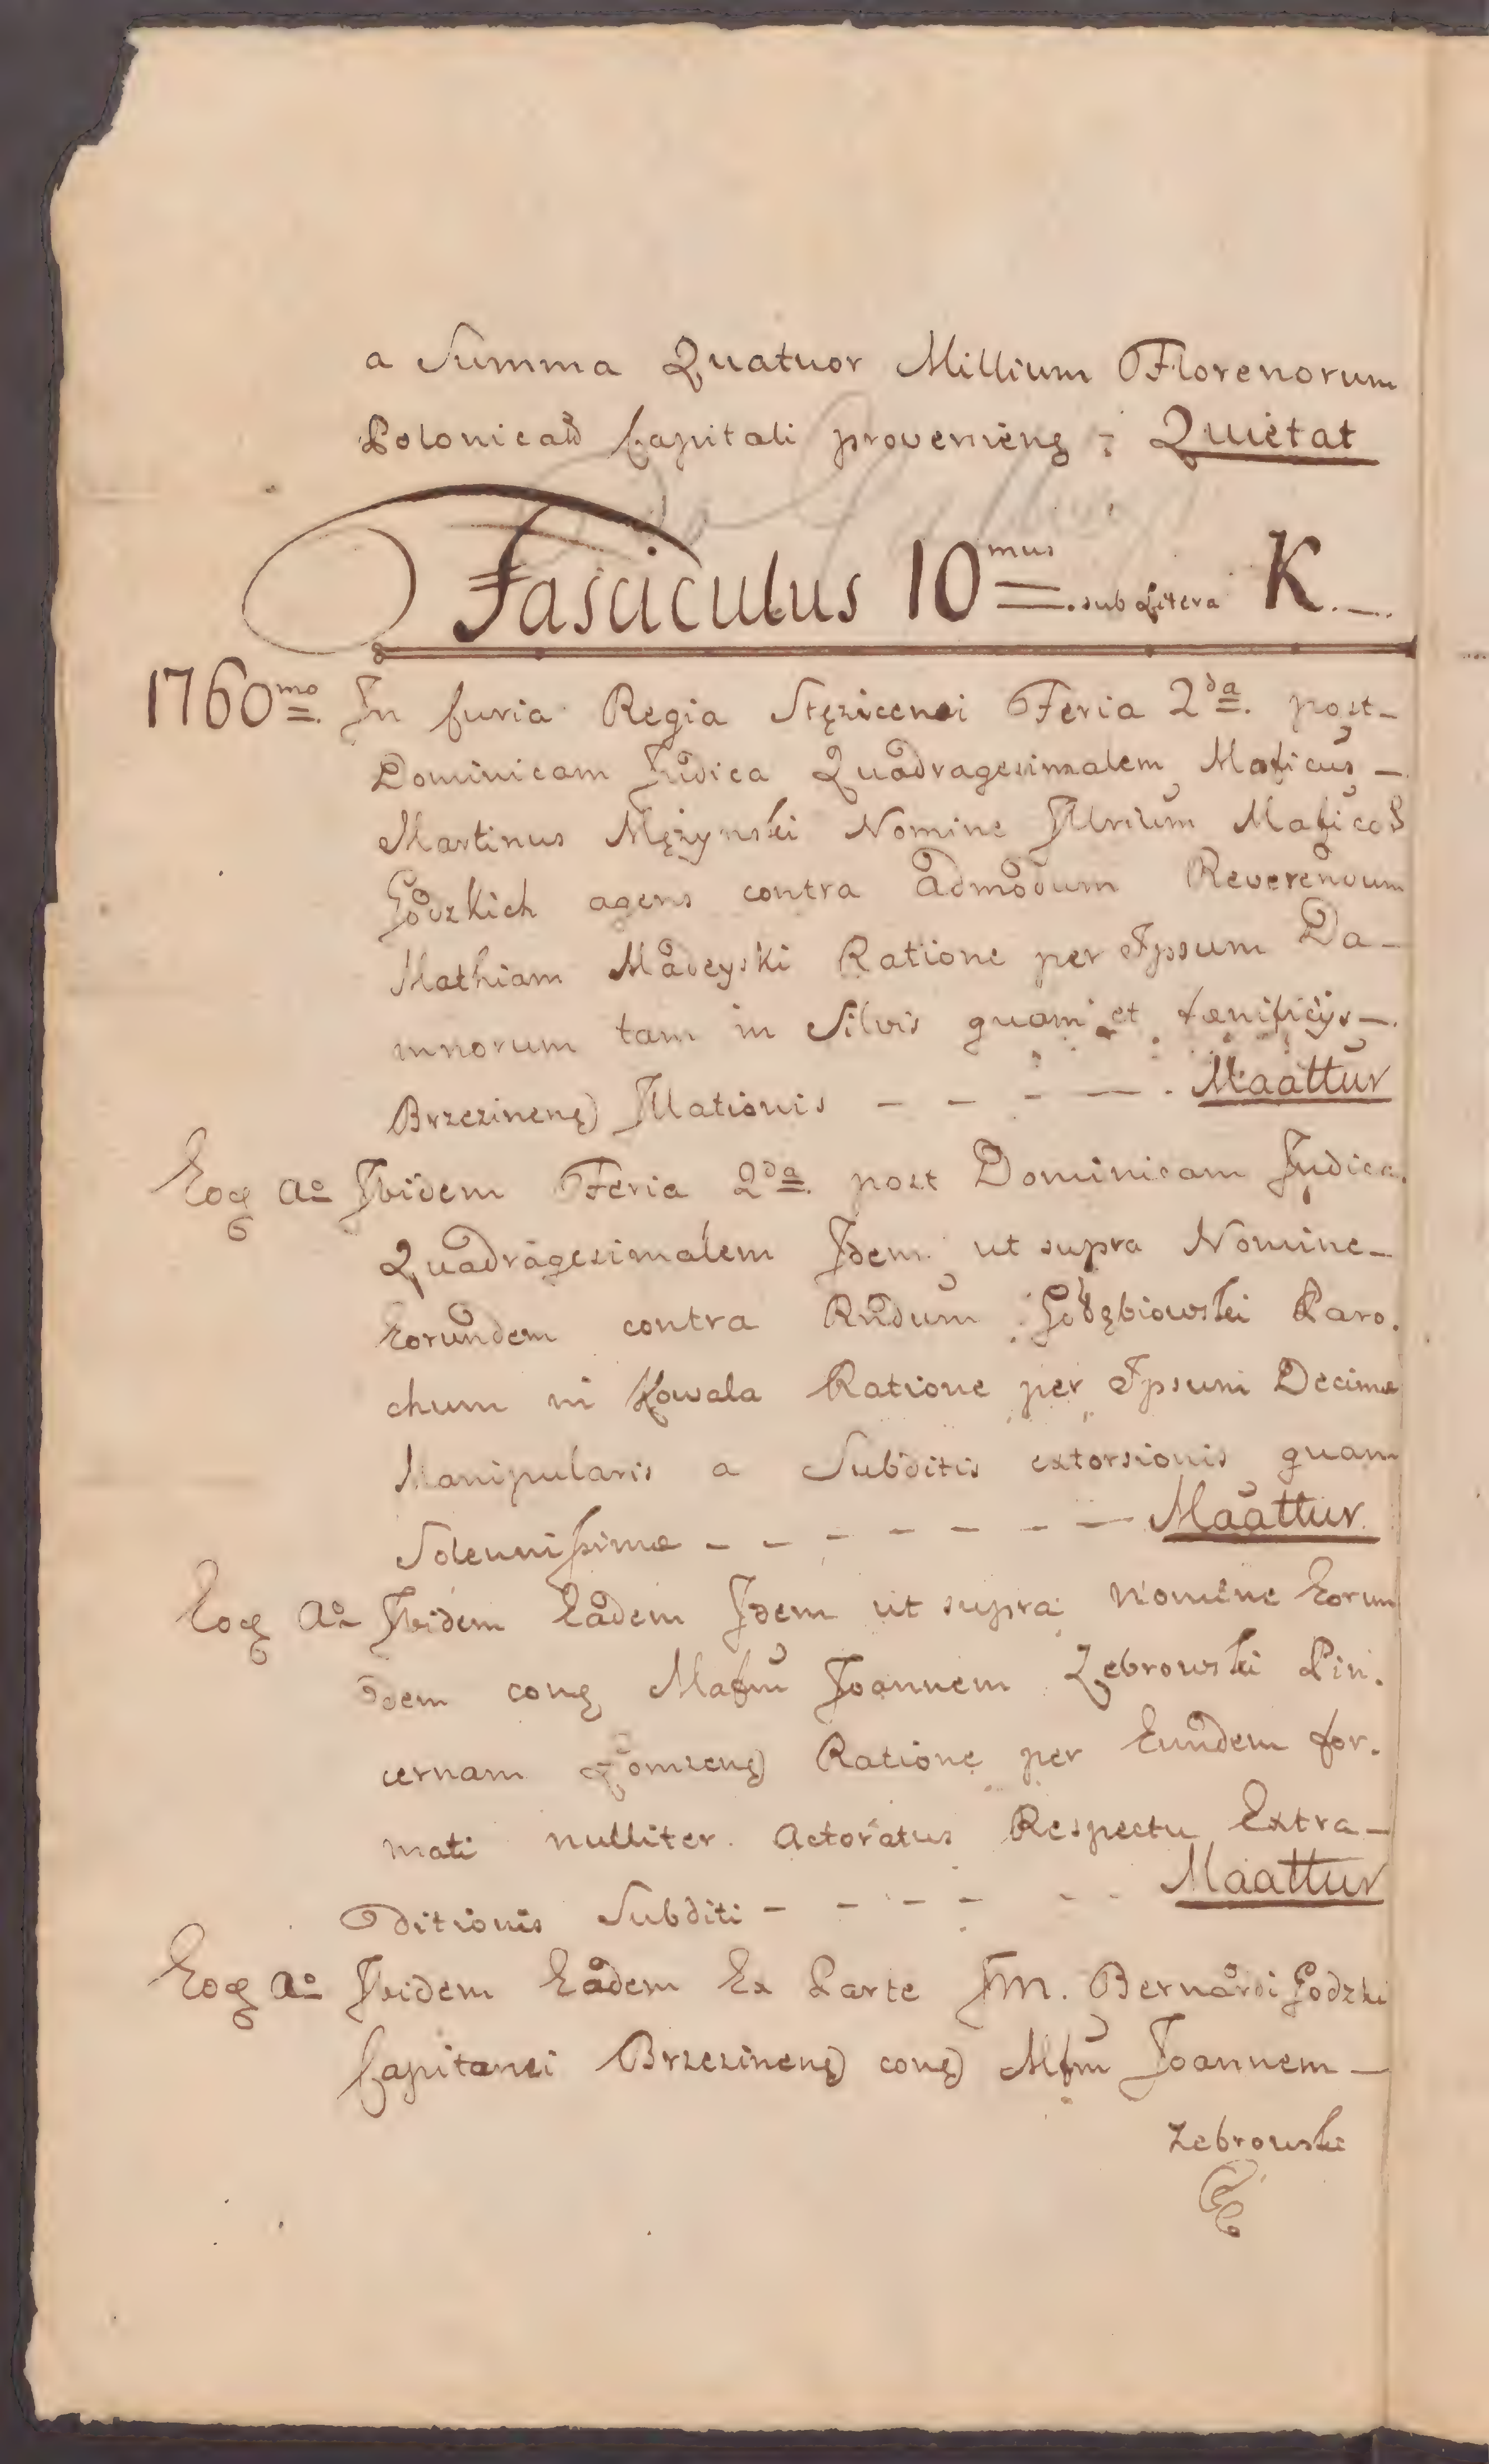 a Summa Quatuor Millium Florenorum
Polonical Capitali provenienę : Quietat
Fasciculus 10mus sub Litera K.
1760mo. In Curia Regia Stęzicensi Feria 2da. post-
Dominicam Judica Quadragesimalem Maficus -
Martinus Mężynski Nomine Jllrium Mafico℞
Godzkich agens contra admodum Reverendum
Mathiam Madeyski Ratione per Ipsum Da-
mnorum tam in Silvis quam et fænificijs -
Brzezinenę Jllationis - - - - . Maattur
Eoꝗ Ao Ibidem Feria 2da. post Dominicam Judica
Quadragesimalem Jdem ut supra Nomine-
Eorundem contra Rndum Gołębiowski Paro.
chum in Kowala Ratione per Ipsum Decimæ
Manipularis a Subditis extorsionis quam
Solennissimæ - - - - - - - Maattur
Eoꝗ Ao Ibidem Eadem Jdem ut supra Nomine Eorun
dem conę Mafm Joannem Zebrowski Pin.
cernam Łomzenę Ratione per Eundem for.
mati nulliter Actoratus Respectu Extra-
ditionis Subditi - - - - - - Maattur
Eoꝗ Ao Ibidem Eadem Ex Parte JM. Bernardi Godzki
Capitanei Brzezinenę conę Mfm Joannem -
Zebrowski